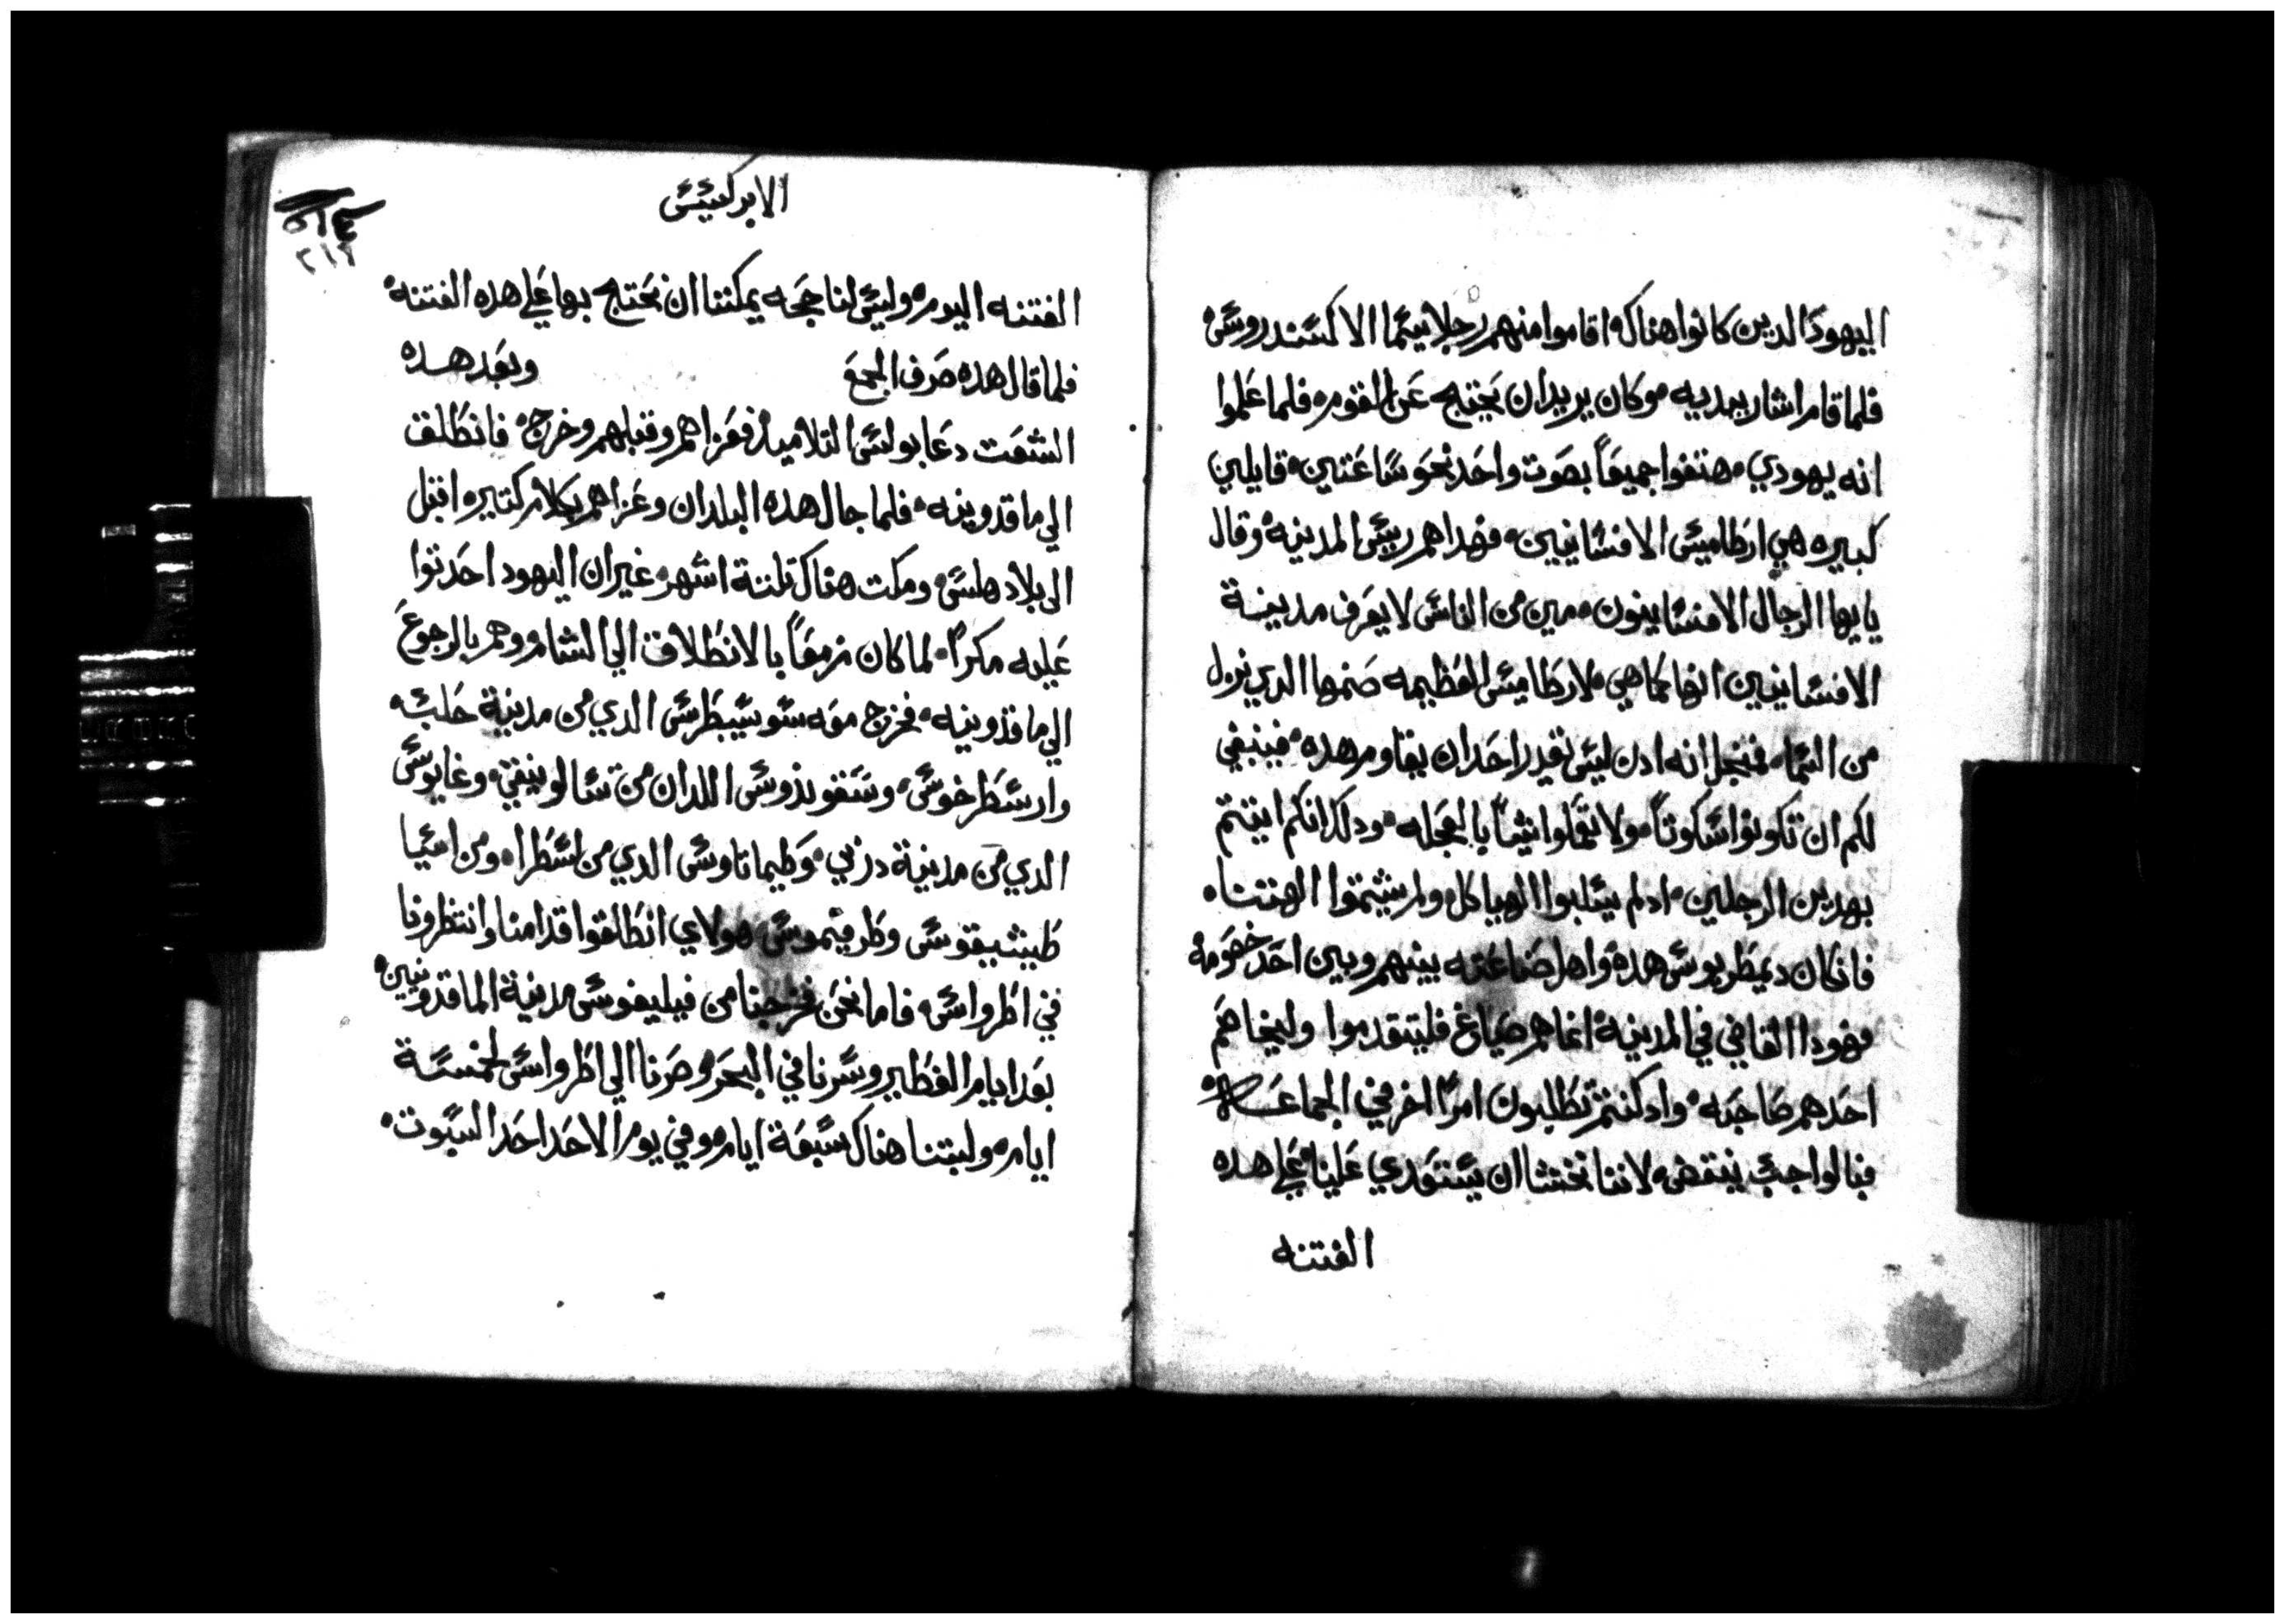 اليهود الدين كانوا هناك اقاموا منهم رجلا يسما الاكسندروس
فلما قام اشار بيديه وكان يريد ان يحتج عن القوم فلما علموا
انه يهودي هتفوا جميعاً بصوت واحد نحو ساعتين قايلين
كبيره هي ارطاميس الافسانيين فهداهم ريس المدينة وقال
يايها الرجال الافسانيون من من الناس لا يعرف مدينة
الافسانيين انها كاهي لارطاميس العظيمه صنمها الدي نزل
من السما فنجل انه ادن ليس يقدر احد ان يقاوم هده فينبغي
لكم ان تكونوا سكوتاً ولا تعملوا شياً بالعجله ودلك انكم اتيتم
بهدين الرجلين اد لم يسلبوا الهياكل ولم يشتموا الهتنا
فان كان ديمطريوس هده واهل صناعته بينهم وبين احد خصومه
فهودا القاضي في المدينة انما هم صياغ فليتقدموا وليخاصم
احدهم صاحبه واد كنتم تطلبون امراً اخر في الجماعة
فبالواجب ينتقض لاننا نخشا ان يستعدي علينا علي هده
الفتنه
الابركسيس
٢١٤
الفتنه اليوم وليس لنا حجه يمكننا ان نحتج بها علي هده الفتنه
فلما قال هده صرف الجمع وبعد هده
الشغت دعا بولس التلاميد فعزاهم وقبلهم وخرج فانطلق
الي ماقدونيه فلما جال هده البلدان وعزاهم بكلام كتير واقبل
الى بلاد هلس ومكت هناك تلتة اشهر غير ان اليهود احدتوا
عليه مكراً لما كان مزمعاً بالانطلاق الي الشام وهم بالرجوع
الي ماقدونيه فخرج معه سوسيبطرس الدي من مدينة حلب
وارسطرخوس وسقوندوس اللدان من تسالونيقي وغايوس
الدي من مدينة دربي وطيماتاوس الدي من لسطرا ومن اسيا
طيشيقوس وطرفيموس هولاي انطالقوا قدامنا وانتظرونا
في اطرواس فاما نحن فخرجنا من فيليفوس مدينة الماقدونيين
بعد ايام الفطير وسرنا في البحر وصرنا الي اطرواس لخمسة
ايام ولبتنا هناك سبعة ايام وفي يوم الاحد احد السبوت